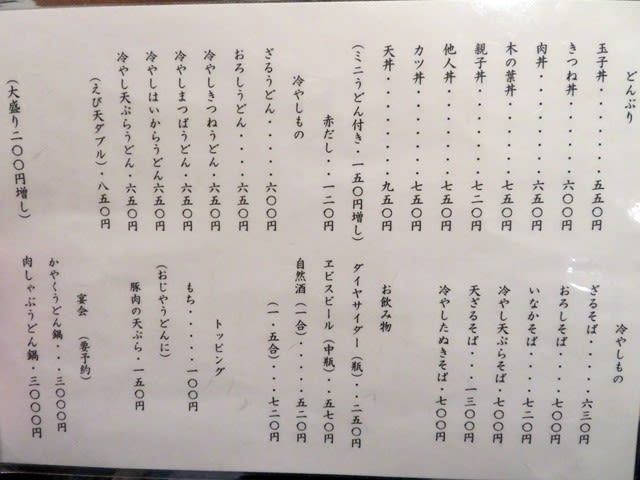 どんぶり
玉子丼・・・・・・・・五五〇円
きつね丼・・・・・・・六〇〇円
肉丼・・・・・・・・・六五〇円
木の葉丼・・・・・・・七五〇円
親子丼・・・・・・・・七二〇円
他人丼・・・・・・・・七五〇円
カツ丼・・・・・・・・七五〇円
天丼・・・・・・・・・九五〇円
(ミニうどん付き・一五〇円増し)
赤だし・・・一二〇円
冷やしもの
ざるうどん・・・・・六〇〇円
おろしうどん・・・・六五〇円
冷やしきつねうどん・六五〇円
冷やしまつばうどん・六五〇円
冷やしはいからうどん六五〇円
冷やし天ぷらうどん・六五〇円
(えび天ダブル)・八五〇円
(大盛り二〇〇円増し)
冷やしもの
ざるそば・・・・・六三〇円
おろしそば・・・・七〇〇円
いなかそば・・・・七二〇円
冷やし天ぷらそば・七〇〇円
天ざるそば・・・一三〇〇円
冷やしたぬきそば・七〇〇円
お飲み物
ダイヤサイダー(瓶)・・二五〇円
ヱビスビール(中瓶)・・五七〇円
自然酒(一合)・・・・・五二〇円
(一・五合)・・・七二〇円
トッピング
もち・・・・・・一〇〇円
(おじやうどんに)
豚肉の天ぷら・一五〇円
宴会 (要予約)
かやくうどん鍋・・・三〇〇〇円
肉しゃぶうどん鍋・・三〇〇〇円